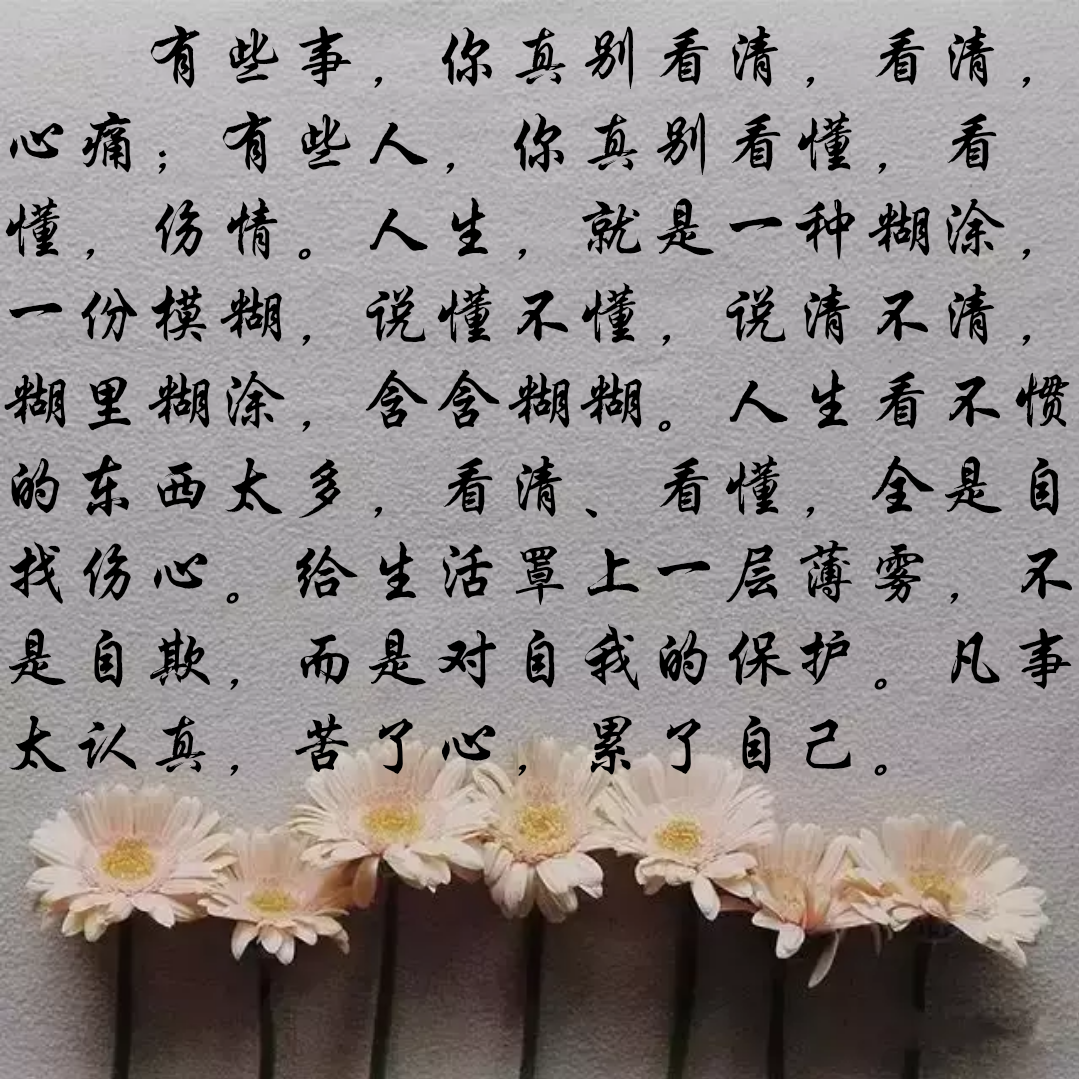 有些事，你真别看清，看清，
心痛；有些人，你真别看懂，看
懂，伤情。人生，就是一种糊涂，
一份模糊，说懂不懂，说清不清，
糊里糊涂，含含糊糊。人生看不惯
的东西太多，看清、看懂，全是自
找伤心。给生活罩上一层薄雾，不
是自欺，而是对自我的保护。凡事
太认真，苦了心，累了自己。